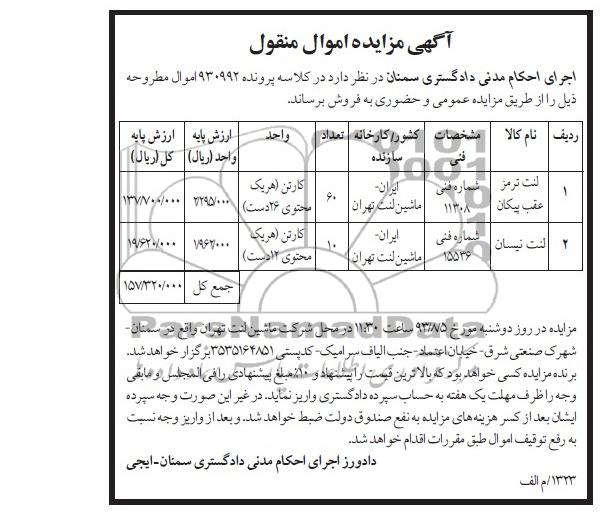 آگهی مزایده اموال منقول
اجرای احکام مدنی دادگستری سمنان در نظر دارد در کلاسه پرونده ۹۳۰۹۹۲ اموال مطروحه
ذیل را از طریق مزایده عمومی و حضوری به فروش برساند.
ردیف نام کالا مشخصات فنی کشور/کارخانه سازنده تعداد واحد ارزش پایه واحد (ریال) ارزش پایه کل (ریال)
۱ لنت ترمز عقب پیکان شماره فنی ۱۱۳۰۸ ایران- ماشین لنت تهران ۶۰ کارتن (هریک محتوی ۲۶دست) ۲/۲۹۵/۰۰۰ ۱۳۷/۷۰۰/۰۰۰
۲ لنت نیسان شماره فنی ۱۵۵۳۶ ایران- ماشین لنت تهران ۱۰ کارتن (هریک محتوی ۱۲دست) ۱/۹۶۲/۰۰۰ ۱۹/۶۲۰/۰۰۰
جمع کل ۱۵۷/۳۲۰/۰۰۰
مزایده در روز دوشنبه مورخ ۹۳/۸/۵ ساعت ۱۱:۳۰ در محل شرکت ماشین لنت تهران واقع در سمنان-
شهرک صنعتی شرق- خیابان اعتماد- جنب الیاف سرامیک- کدپستی ۳۵۳۵۱۶۴۸۵۱ برگزار خواهد شد.
برنده مزایده کسی خواهد بود که بالاترین قیمت را پیشنهاد و ۱۰٪ مبلغ پیشنهادی را فی المجلس و مابقی
وجه را ظرف مهلت یک هفته به حساب سپرده دادگستری واریز نماید. در غیر این صورت وجه سپرده
ایشان بعد از کسر هزینه‌های مزایده به نفع صندوق دولت ضبط خواهد شد. و بعد از واریز وجه نسبت
به رفع توقیف اموال طبق مقررات اقدام خواهد شد.
دادورز اجرای احکام مدنی دادگستری سمنان-ایجی
۱۳۲۳/م الف
ParsNamadData